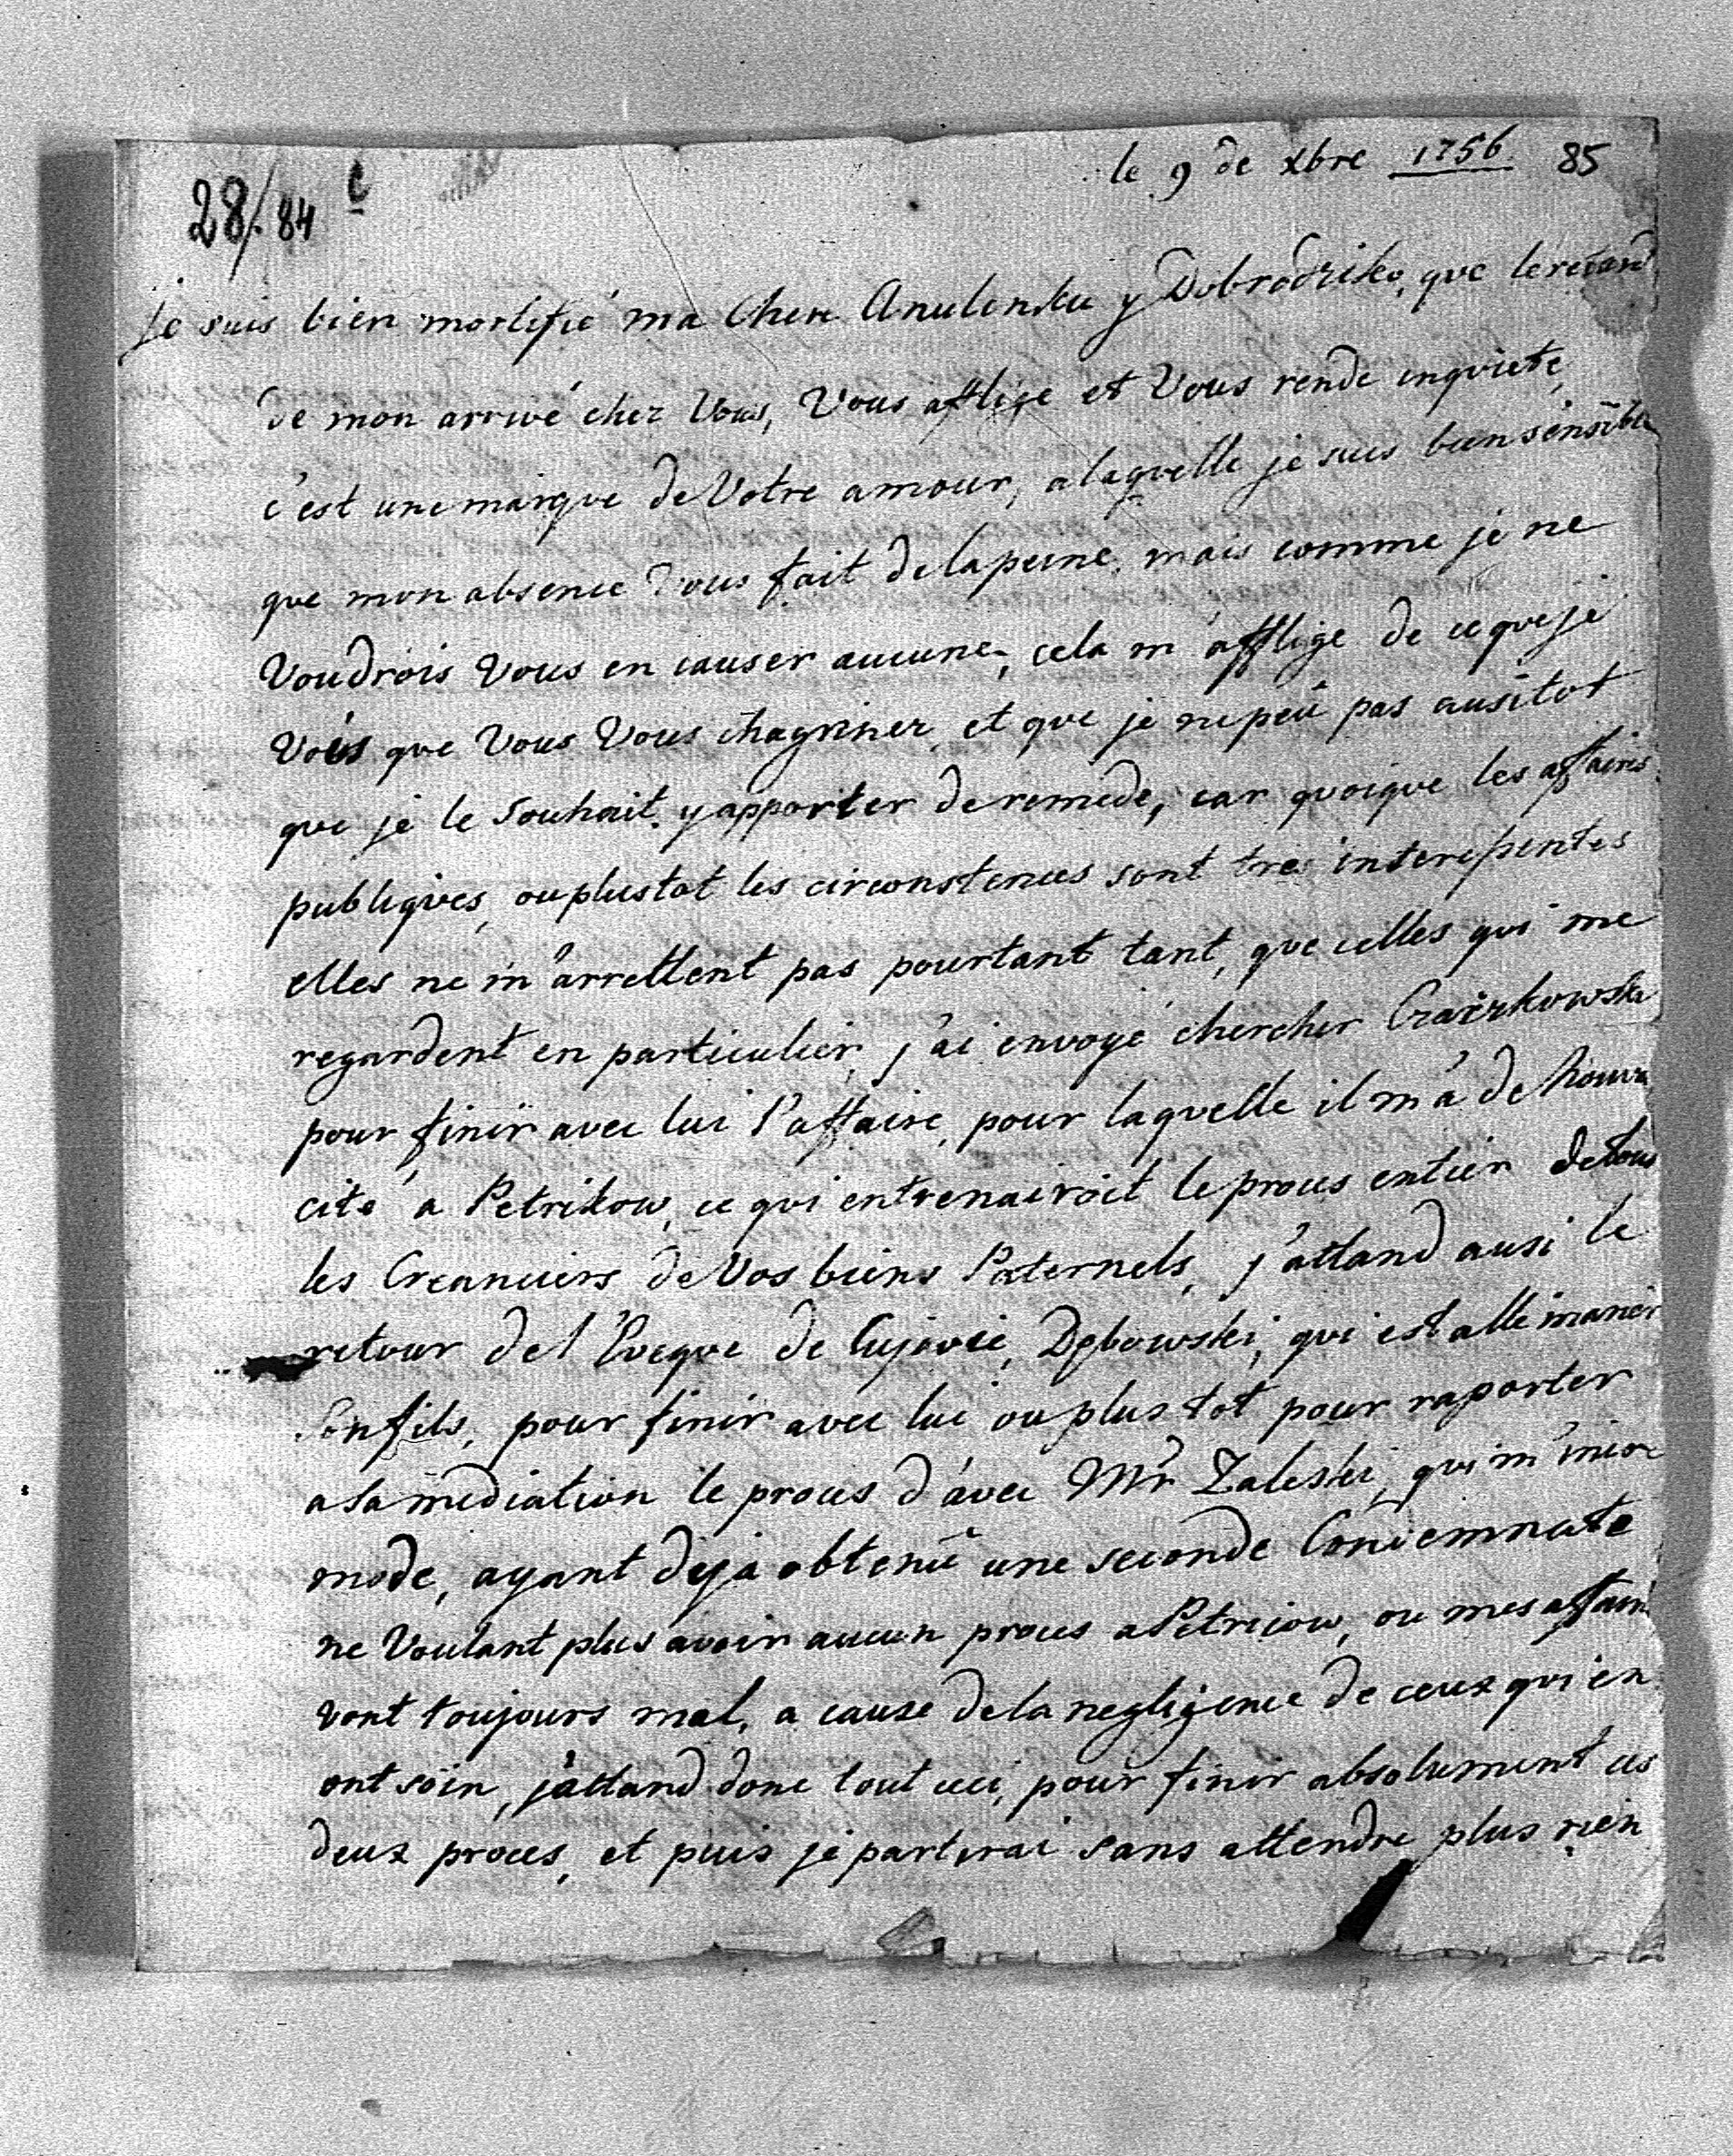 le 9 de xbre 1756 85
28/. 84 c
Je suis bien mortifié ma Chere Anulenku y Dobrodziko, que le retard
de mon arrivé chez Vous, Vous afflige et Vous rende inquiete,
c'est une marque de Votre amour, a laquelle je suis bien sensible
que mon absence Vous fait de la peine, mais comme je ne
Voudrois Vous en causer aucune, cela m'afflige de ce que je
Vois que Vous Vous chagriner, et que je ne peû pas ausitot
que je le Souhait, y apporter de remede, car quoique les affaires
publiques, ou plustot les circonstences sont tres
elles ne m'arrettent pas pourtant tant, que celles qui me
regardent en particulier, j'ai envoyé chercher
pour finir avec lui l'affaire, pour laquelle il m'a de
cité a Petrikow, ce qui entrenairoit le proces entier de tous
les Creanciers de Vos biens Paternels, j'attand ausi le
retour de l'Eveque de Cujavie, Dębowski, qui est allé marier
Son fils, pour finir avec lui ou plus tot pour raporter
a sa mediation le proces d'avec Mr Zaleski, qui m'inco
mode, ayant deja obtenû une seconde Condemnate
ne Voulant plus avoir aucun proces a Petricow, ou mes affair
vont toujours mal, a cause de la negligence de ceux qui en
ont soin, j'attand donc tout ceci, pour finir absolument ces
deux proces, et puis je partirai sans attendre plus rien